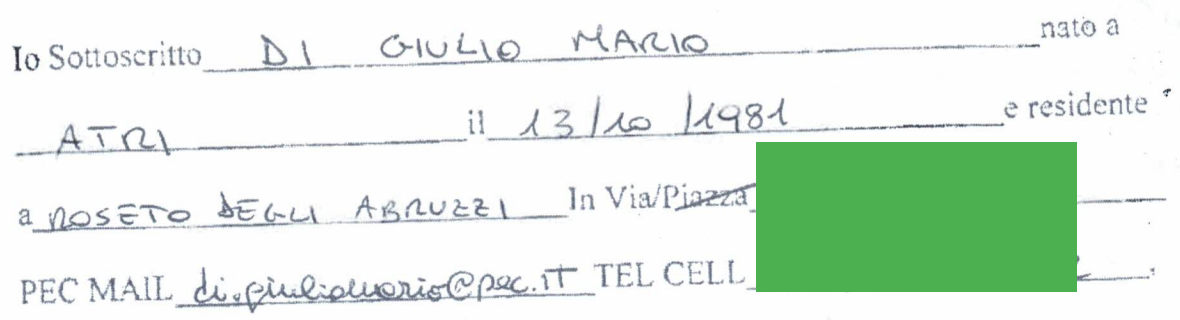 Io Sottoscritto DI GIULIO MARIO nato a
ATRI il 13/10/1981 e residente
a ROSETO DEGLI ABRUZZI In Via/Piazza
PEC MAIL di.giuliomario@pec.it TEL CELL